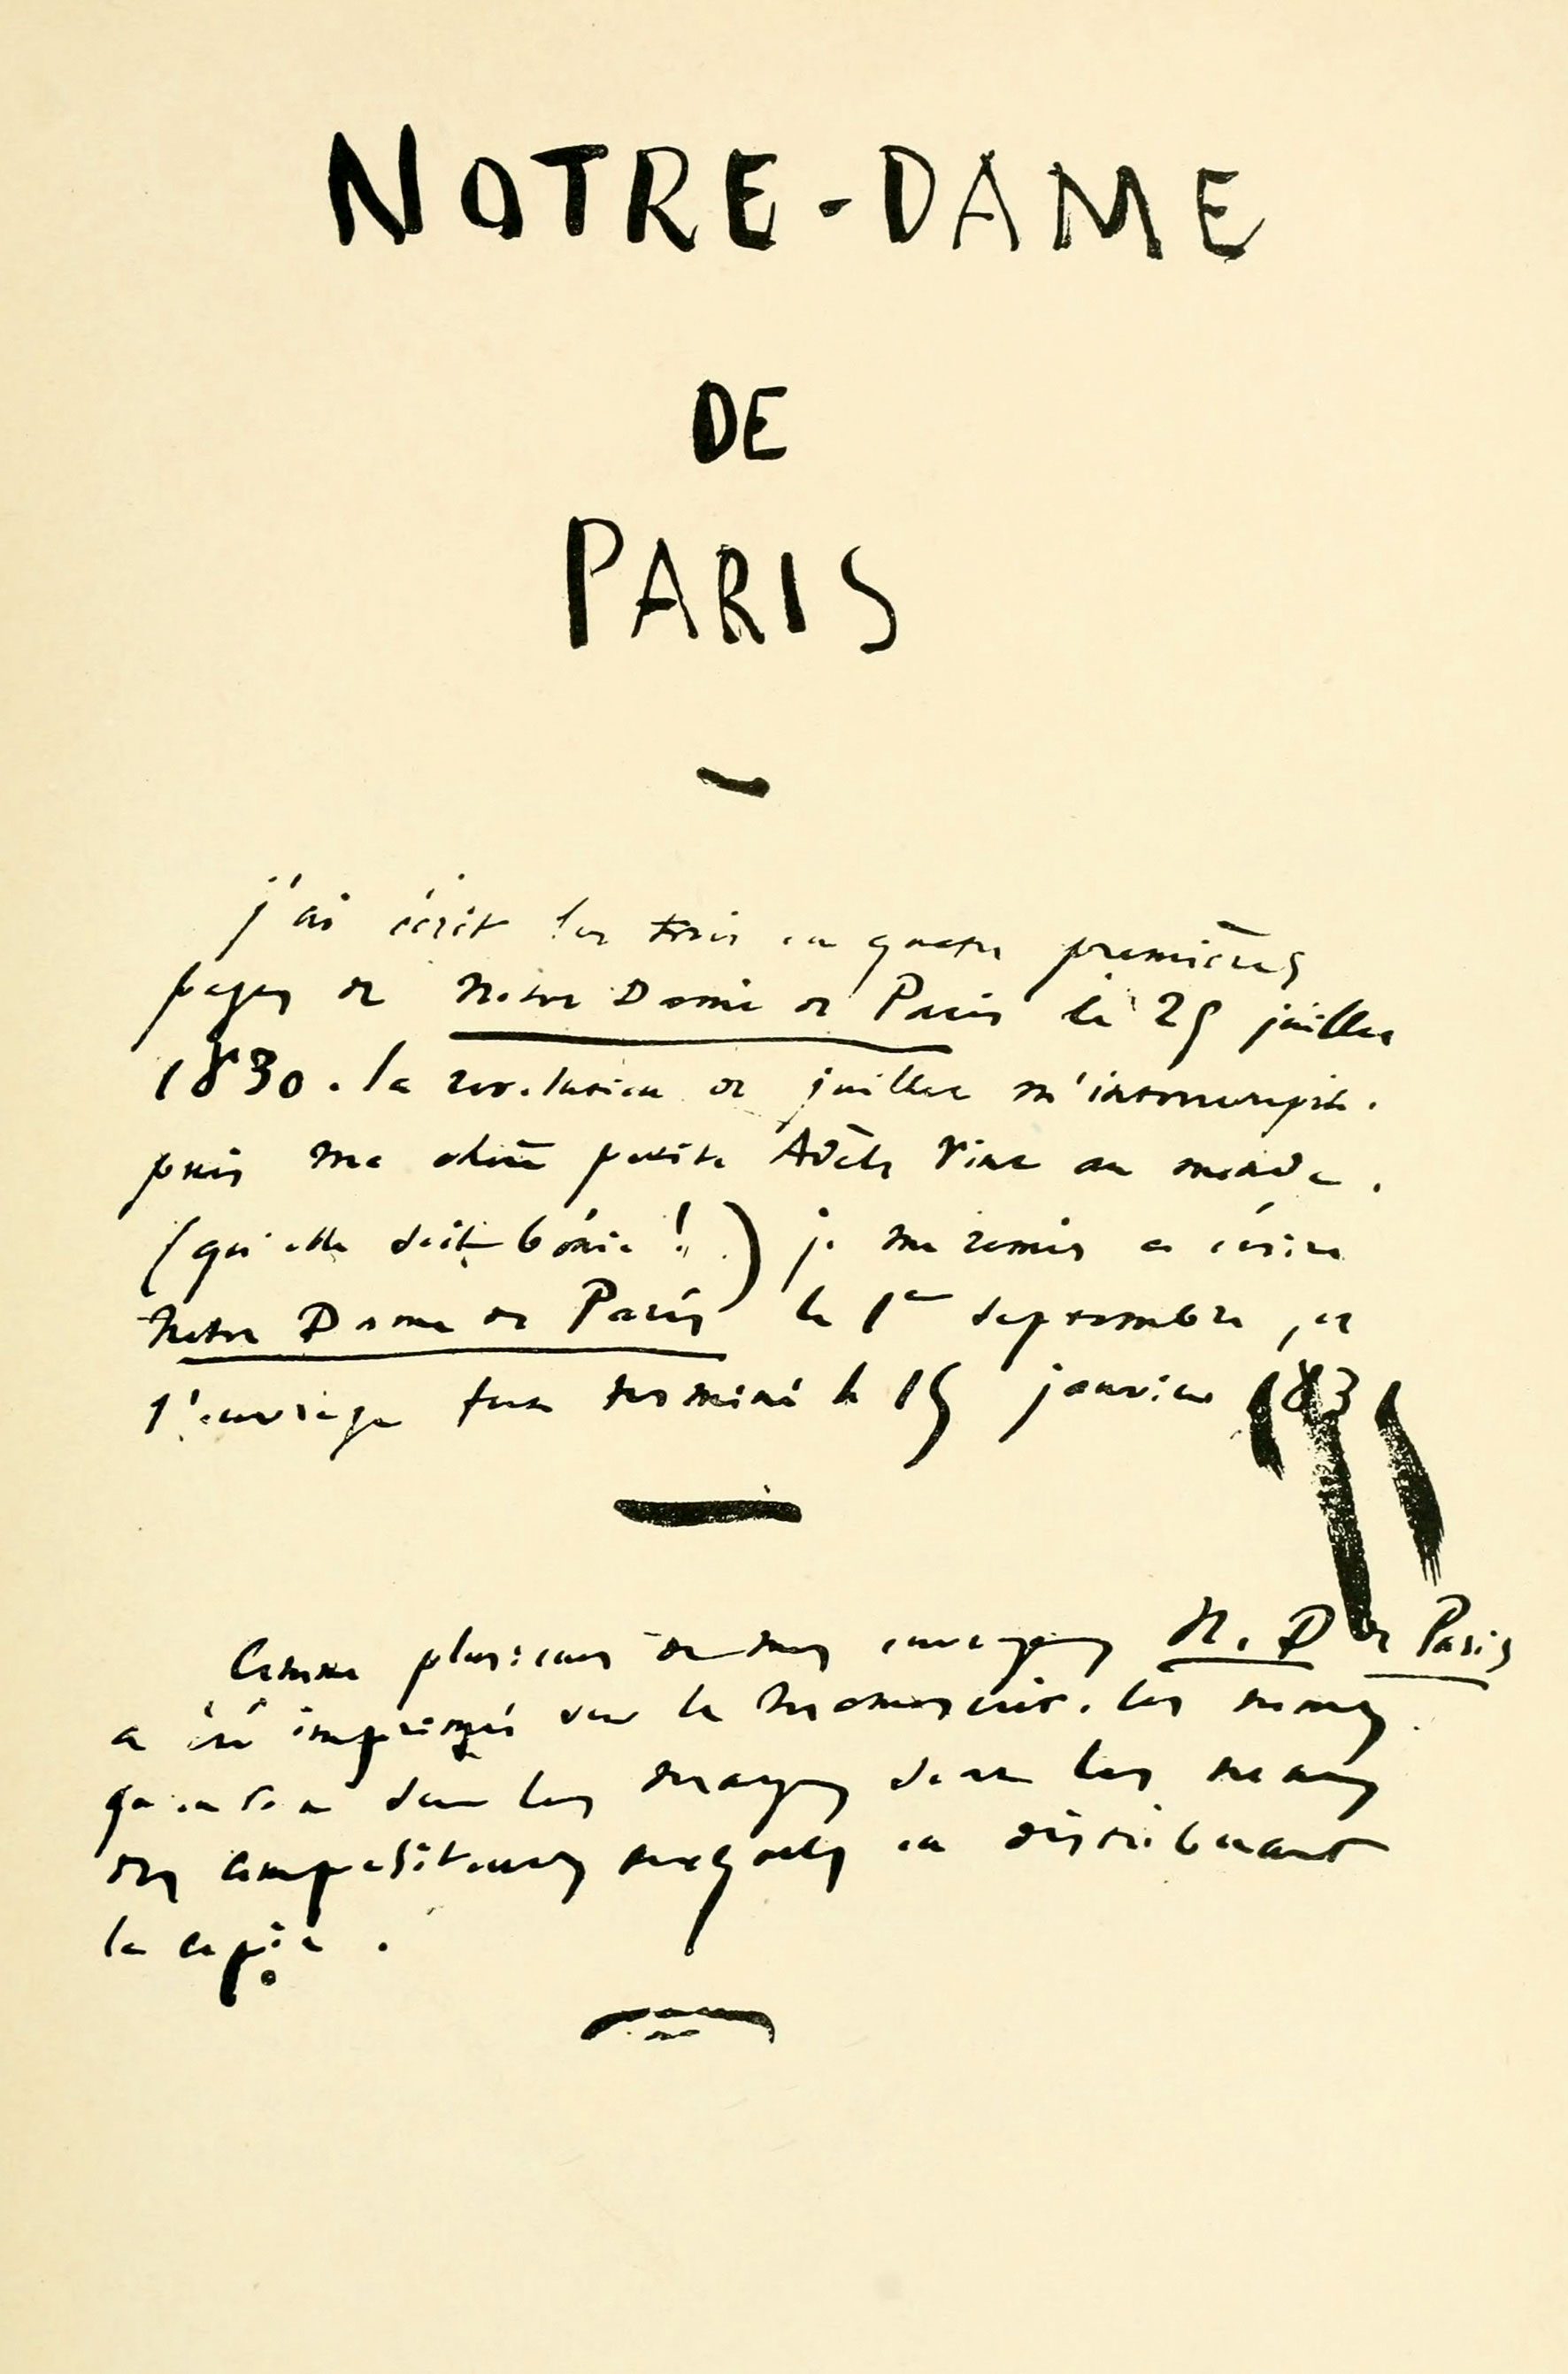 NOTRE-DAME
DE
PARIS
j'ai écrit les trois ou quatre premières
pages de Notre Dame de Paris le 25 juillet
1830. la révolution de juillet m'interrompit.
puis ma chère petite Adèle vint au monde.
(qu'elle soit bénie !) je me remis à écrire
Notre Dame de Paris le 1er septembre, et
l'ouvrage fut terminé le 15 janvier 1831
Comme plusieurs de mes ouvrages N. D de Paris
a été imprimé sur le manuscrit. les noms
qu'on voit dans les marges sont les noms
des compositeurs auxquels on distribuait
la copie.